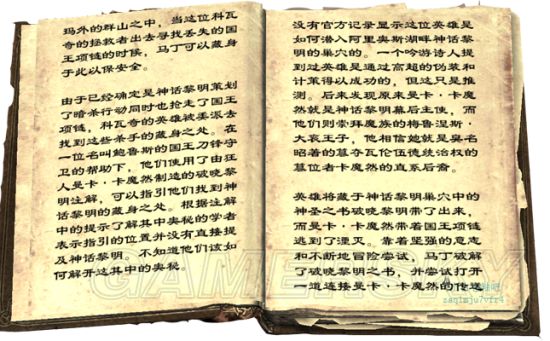 玛外的群山之中，当这位科瓦
奇的拯救者出去寻找丢失的国
王项链的时候，马丁可以藏身
于此以保安全。
由于已经确定是神话黎明策划
了暗杀行动同时也抢走了国王
项链，科瓦奇的英雄被美派去
找到这些杀手的藏身之处。在
一位名叫鲍鲁斯的国王刀锋守
卫的帮助下，他们使用了由狂
人曼卡·卡魔然制造的破晓黎
明注解，可以指引他们找到神
话黎明的藏身之处。根据注解
中的提示了解其中奥秘的学者
表示指引的位置并没有直接提
及神话黎明。不知道他们该如
何解开这其中的奥秘。
没有官方记录显示这位英雄是
如何潜入阿里奥斯湖畔神话黎
明的巢穴的。一个吟游诗人提
到过英雄是通过高超的伪装和
计策得以成功的，但这只是推
测。后来发现原来曼卡·卡魔
然就是神话黎明幕后主使，而
他们则崇拜魔族的梅鲁涅斯·
大衮王子，他相信她就是臭名
昭着的篡夺瓦伦伍德统治权的
篡位者卡魔然的直系后裔。
英雄将藏于神话黎明巢穴中的
神圣之书破晓黎明带了出来，
而曼卡·卡魔然带着国王项链
逃到了湮灭。靠着坚强的意志
和不断地冒险尝试，马丁破解
了破晓黎明之书，并尝试打开
一道连接曼卡·卡魔然的传送
GAMERSKY
zaq1mju7vfr4